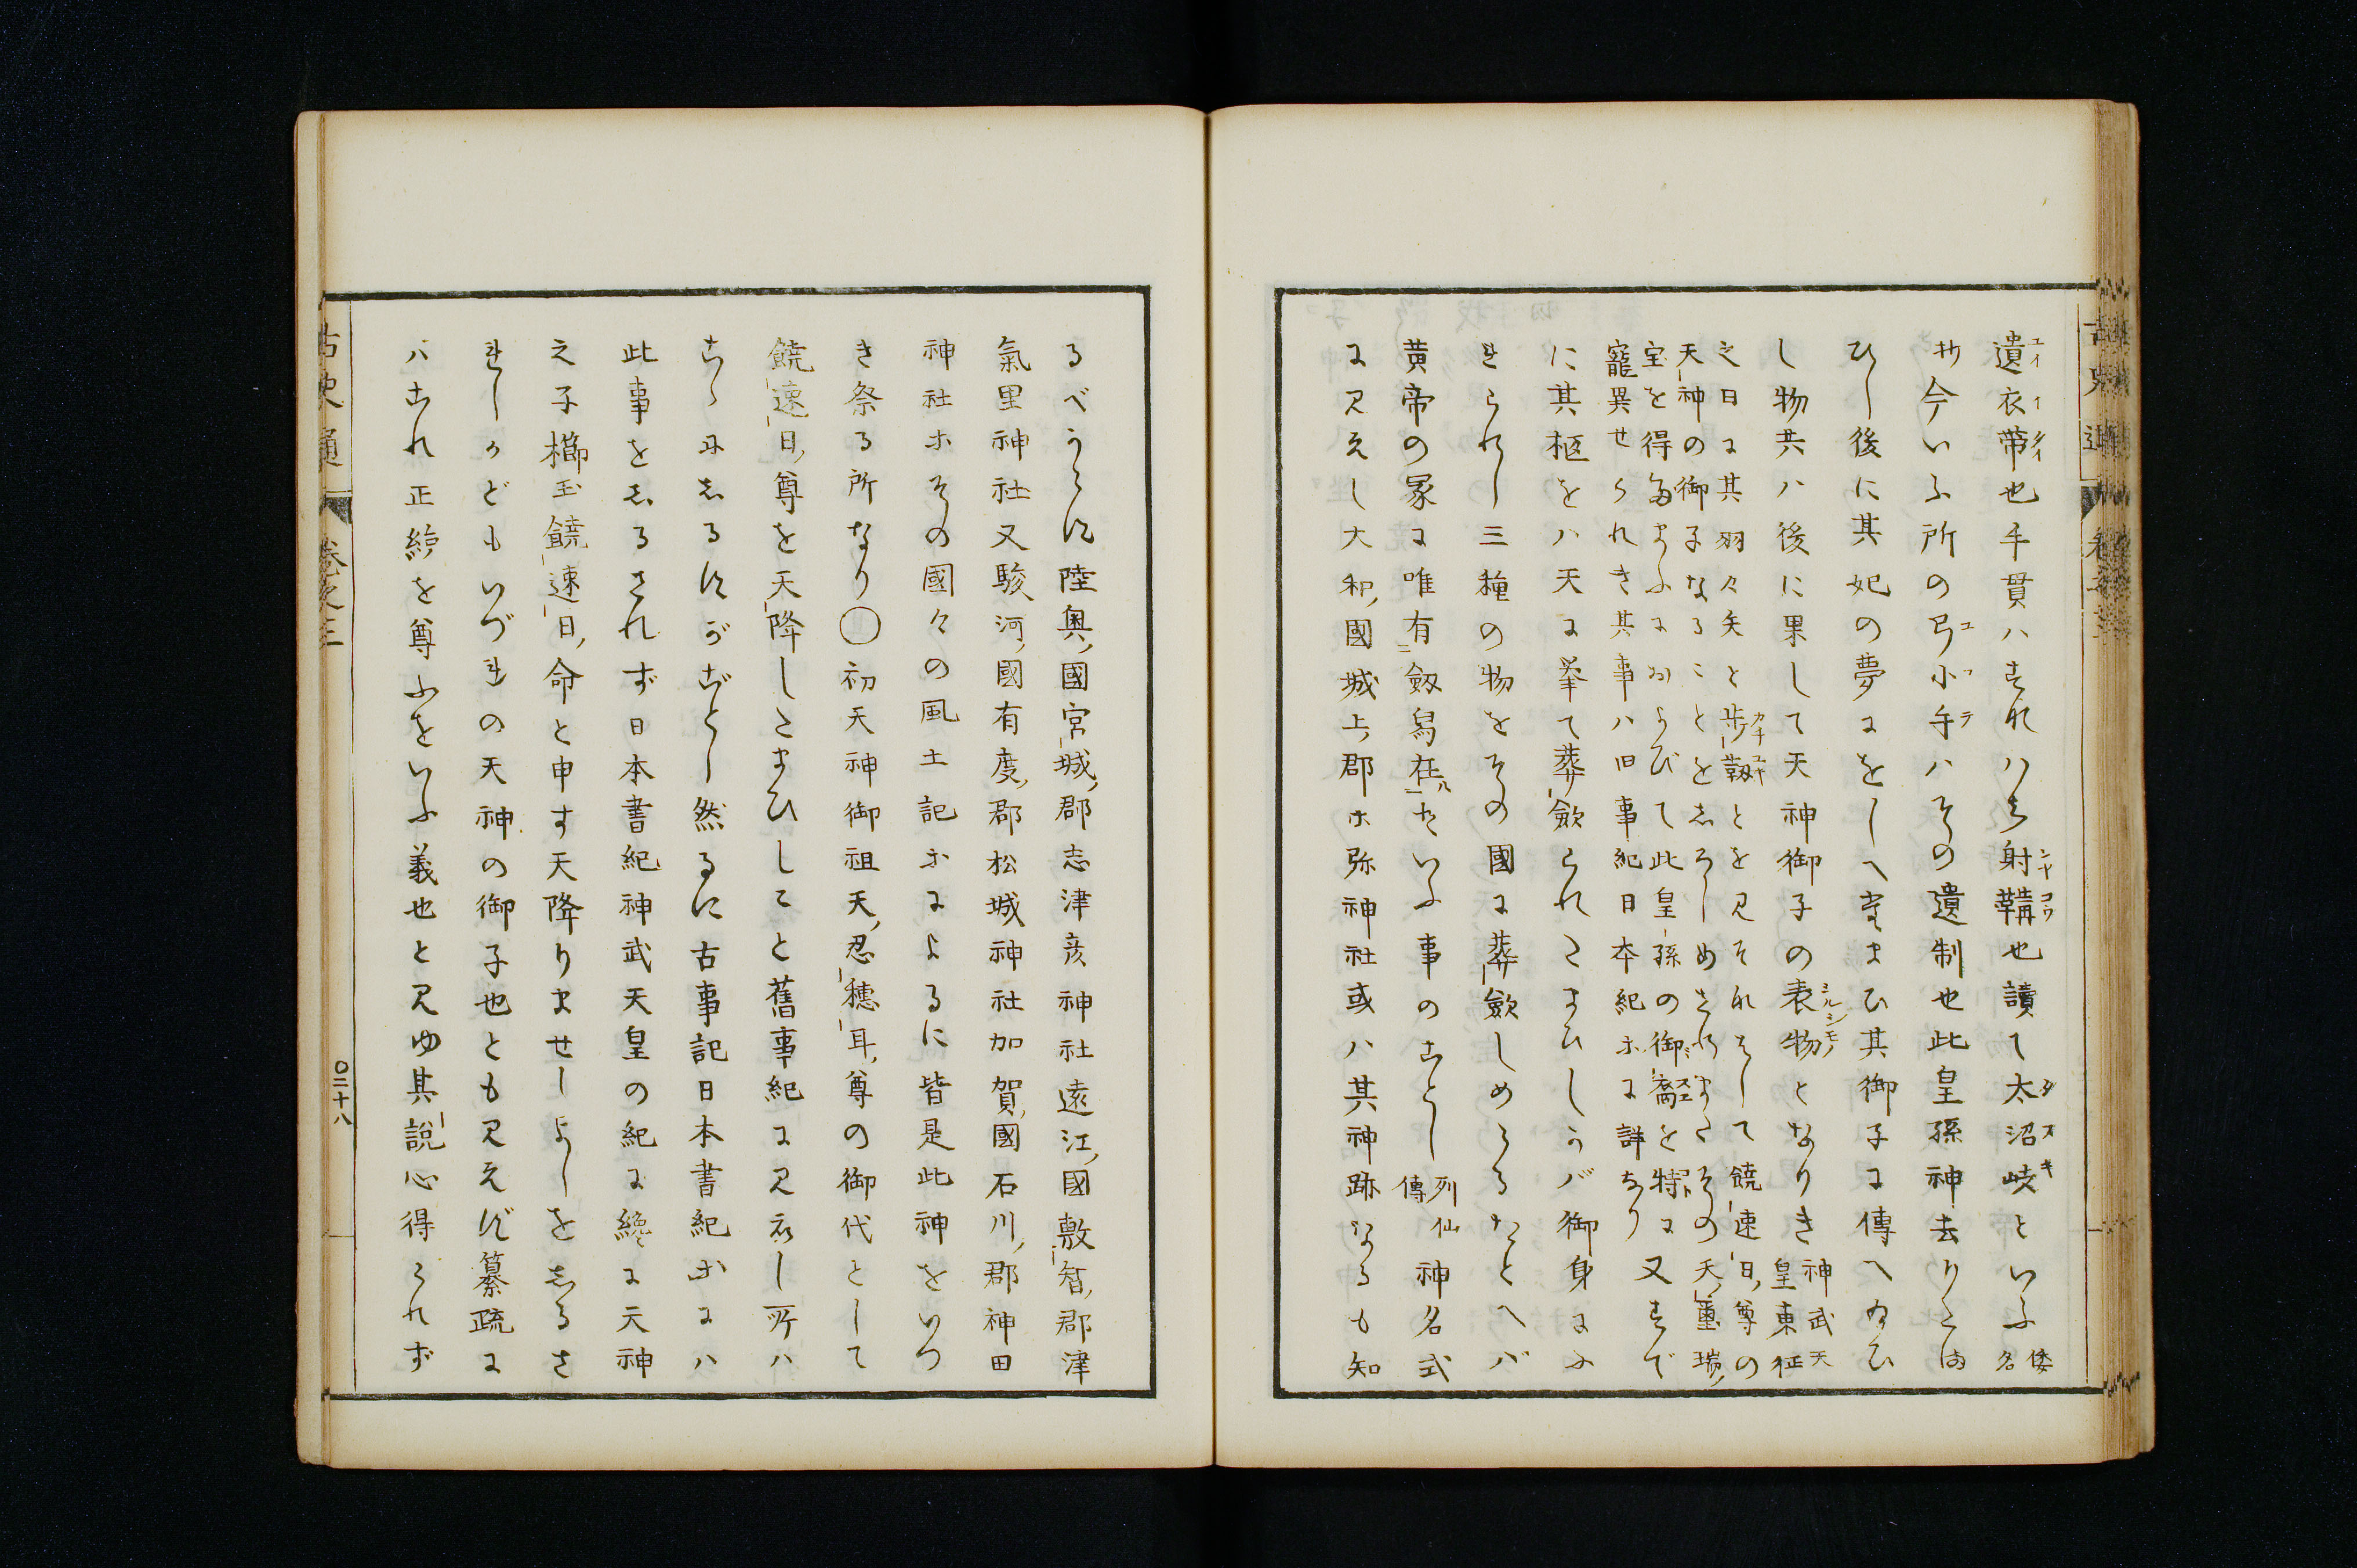 遺衣帯也手貫ハ也射鞲也讀て太沼岐といふ倭名
廾今いふ所の弓小手ハその遺制也此皇孫神去り
ひし後に其妃の夢にをしへ給ひ其御子に傳へ
し物共ハ後に果して天神御子の表物となりき神武天皇東征
之日に其羽々矢と歩靫とを見それそして饒速日尊の
天神の御子なることをしろしめされまたその天璽瑞
宝を得給ふにおよびて此皇孫の御裔を特に又すで
寵異せられき其事ハ旧事紀日本紀等に詳なり
に其柩をハ天に挙て葬歛られたまひしかバ御身に
られし三種の物をその國に葬歛しめらるなとへバ
黄帝の冢に唯有劔舄在といふ事のことし列仙傳神名式
に見えし大和國城上郡等弥神社或ハ其神跡なるも知
るべからす陸奥國宮城郡志津彦神社遠江國敷智郡津
氣里神社又駿河國有度郡松城神社加賀國石川郡神田
神社等その國々の風土記等によるに皆是此神をいつ
き祭る所なり〇初天神御祖天忍穂耳尊の御代として
饒速日尊を天降したまひしこと舊事紀に見えし所ハ
こゝにしるすがごとし然るに古事記日本書紀等にハ
此事をしるされず日本書紀神武天皇の紀に纔に天神
之子櫛玉饒速日命と申す天降りませしよしをしるさ
れしかどもいづれの天神の御子也とも見えず纂疏に
ハこれ正統を尊ふをいふ義也と見ゆ其説心得られず
古史通
巻之三
〇二十八